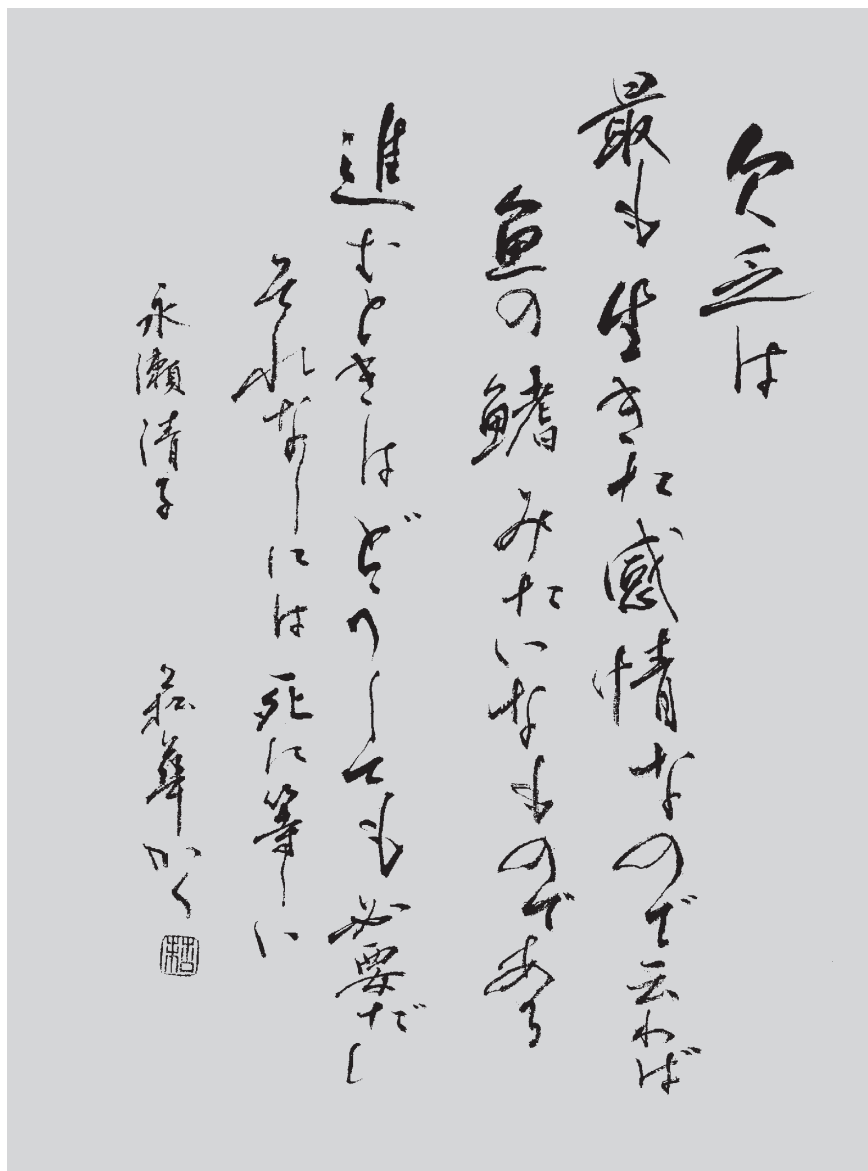 欠乏は
最も生きた感情なので云わば
魚の鰭みたいなものである
進むときはどうしても必要だし
それなしには死に等しい
永瀬清子
華かく